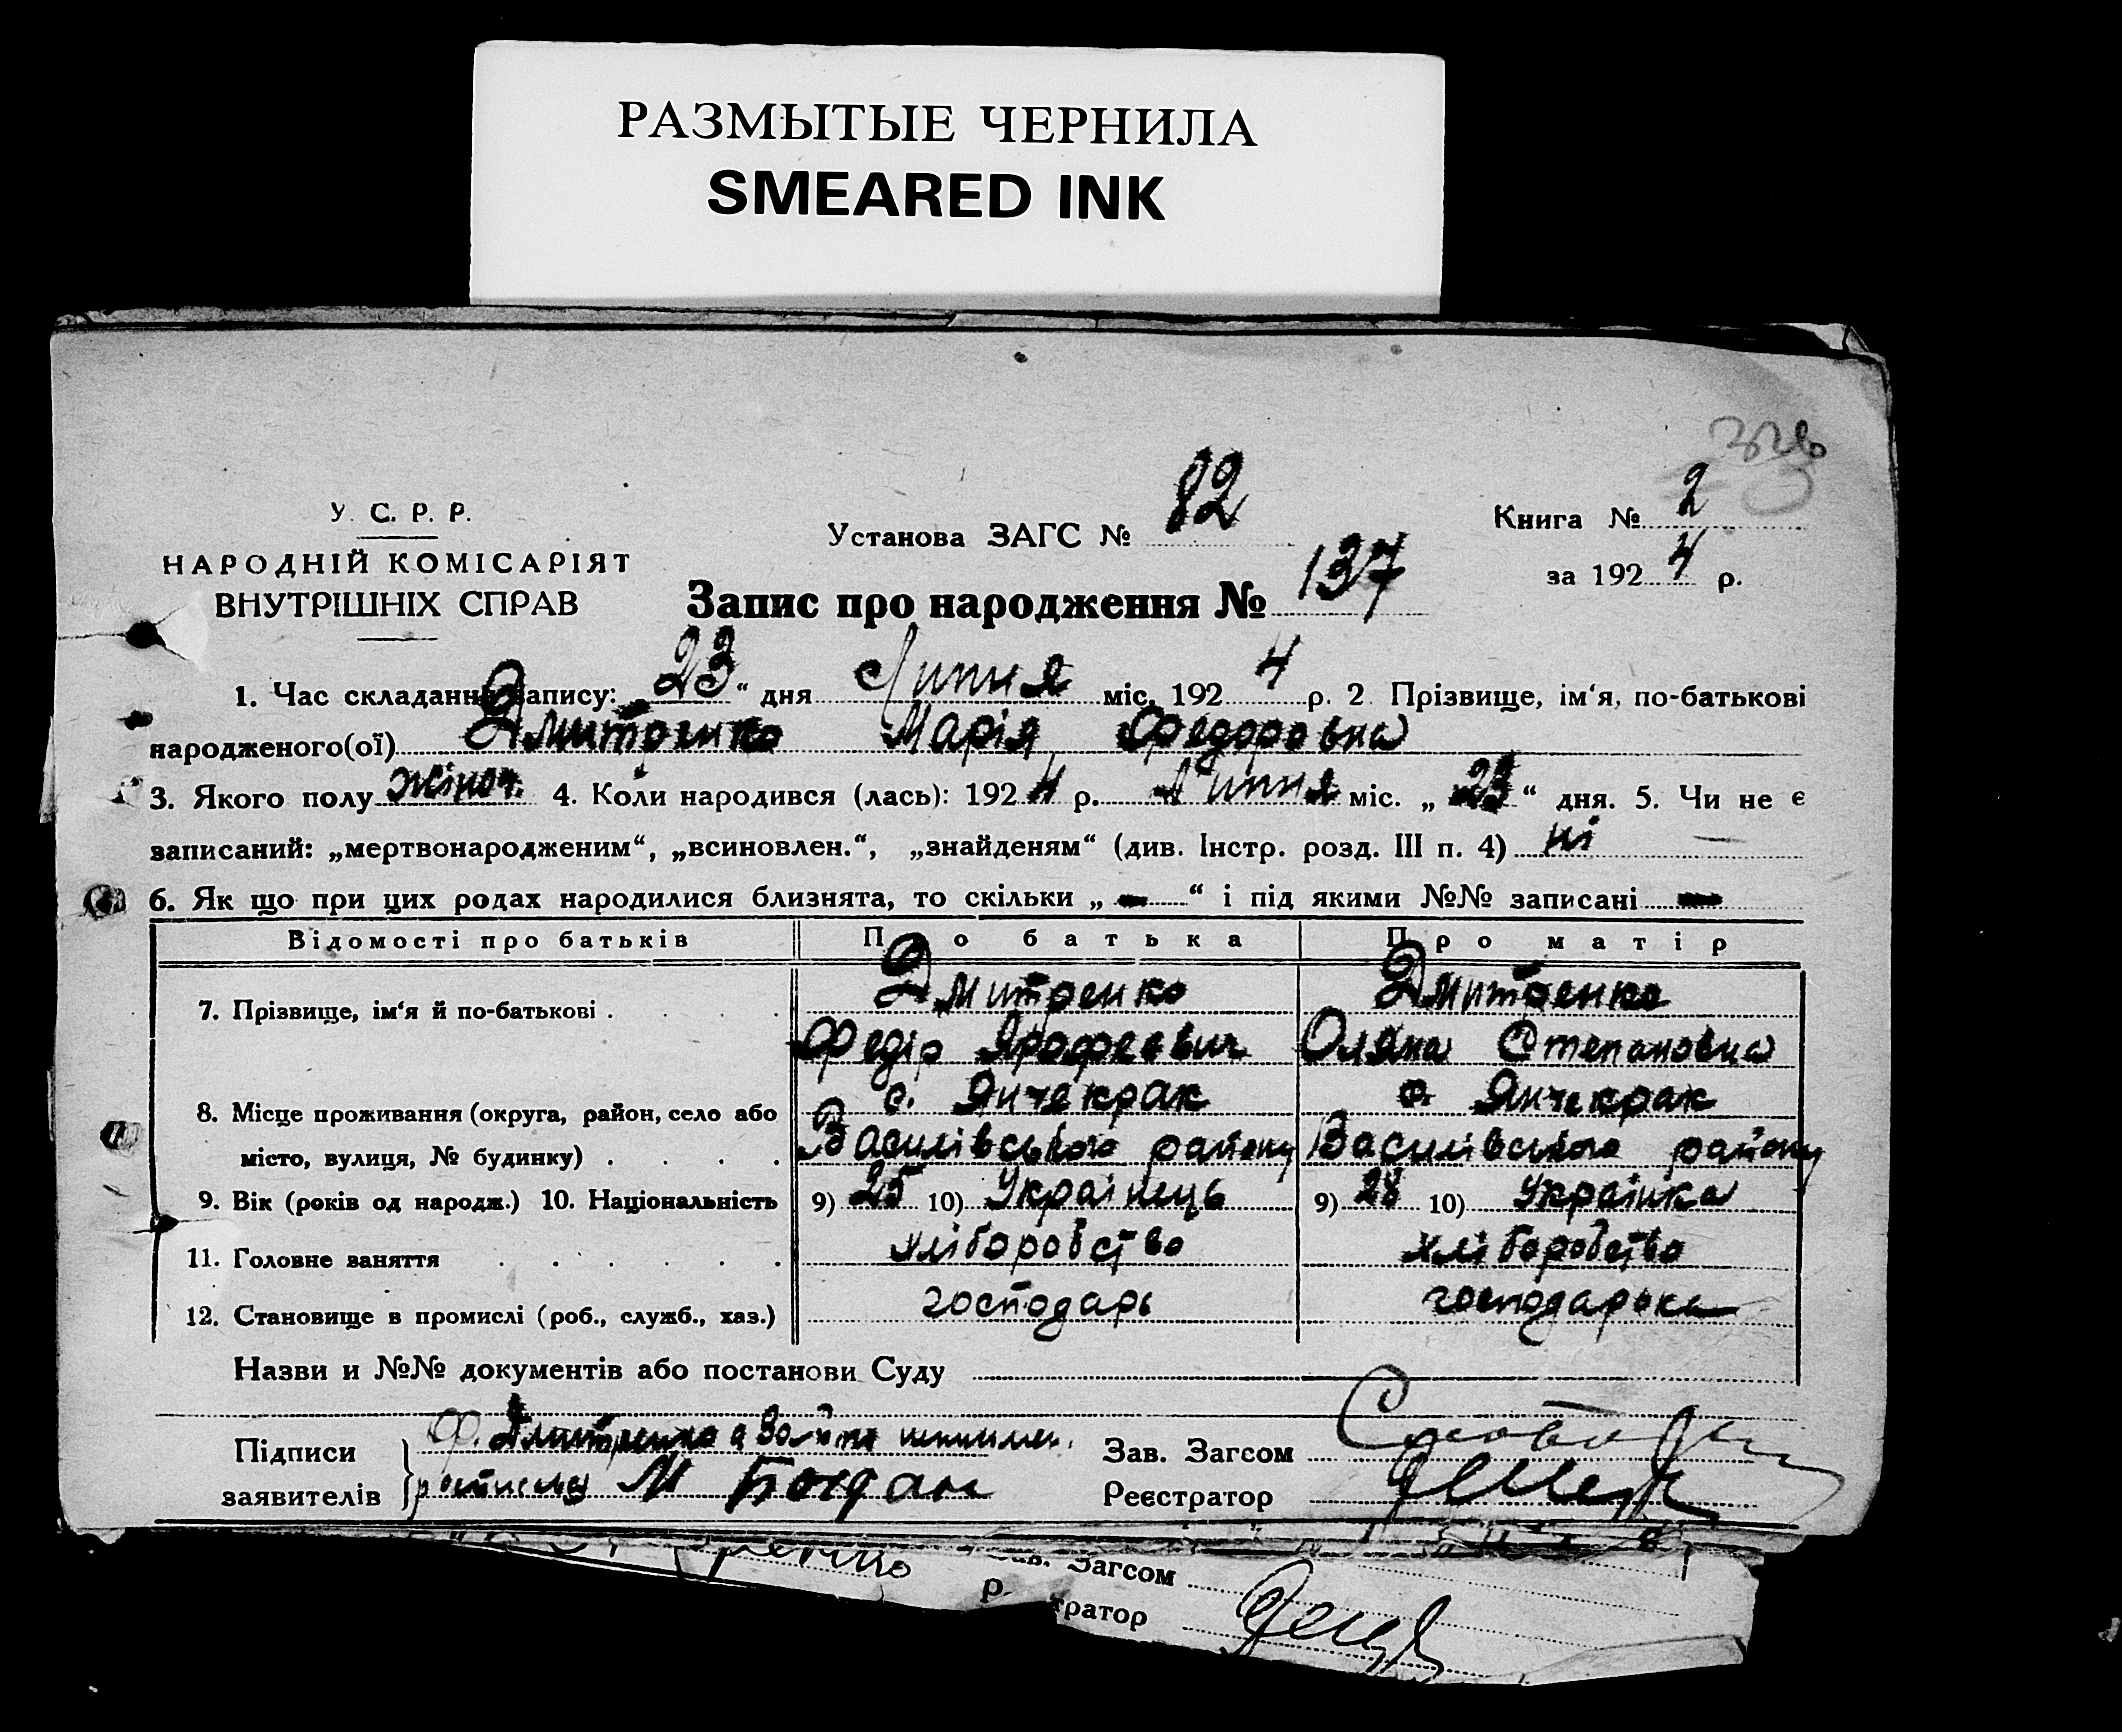 РАЗМЫТЫЕ ЧЕРНИЛА
SMEARED INK
У. С. Р. Р.
НАРОДНІЙ КОМІСАРІЯТ
ВНУТРІШНІХ СПРАВ
Установа ЗАГС № 82
Книга № 2
за 1924 р.
Запис про народження № 137
1. Час складання запису: „23“ дня Липня міс. 1924 р. 2 Прізвище, ім‘я, по-батькові
народженого(ої) Дмитренко Марія Федоровна
3. Якого полу жіноч. 4. Коли народився (лась): 1924 р. Липня міс. „23“ дня. 5. Чи не є
записаний: „мертвонародженим“, „всиновлен.“, „знайденям“ (див. Інстр. розд. III п. 4) ні —
6. Як що при цих родах народилися близнята, то скільки „ — “ і під якими №№ записані —
Відомості про батьків Про батька Про матір
7. Прізвище, ім‘я й по-батькові . . . . Дмитренко Дмитренко
Федір Ярофеевич Оляна Степановна
8. Місце проживання (округа, район, село або с. Янчекрак с. Янчекрак
місто, вулиця, № будинку) . . . . Василівського району Василівського району
9. Вік (років од народж.) 10. Національність 9) 25 10) Українець 9) 28 10) Українка
11. Головне заняття . . . . . . хліборобство хліборобство
12. Становище в промислі (роб., служб., хаз.) господарь господарька
Назви и №№ документів або постанови Суду
Підписи Ф. Дмитренко а За Зав. Загсом
заявителів М Богдан Реєстратор
Загсом
р. тратор